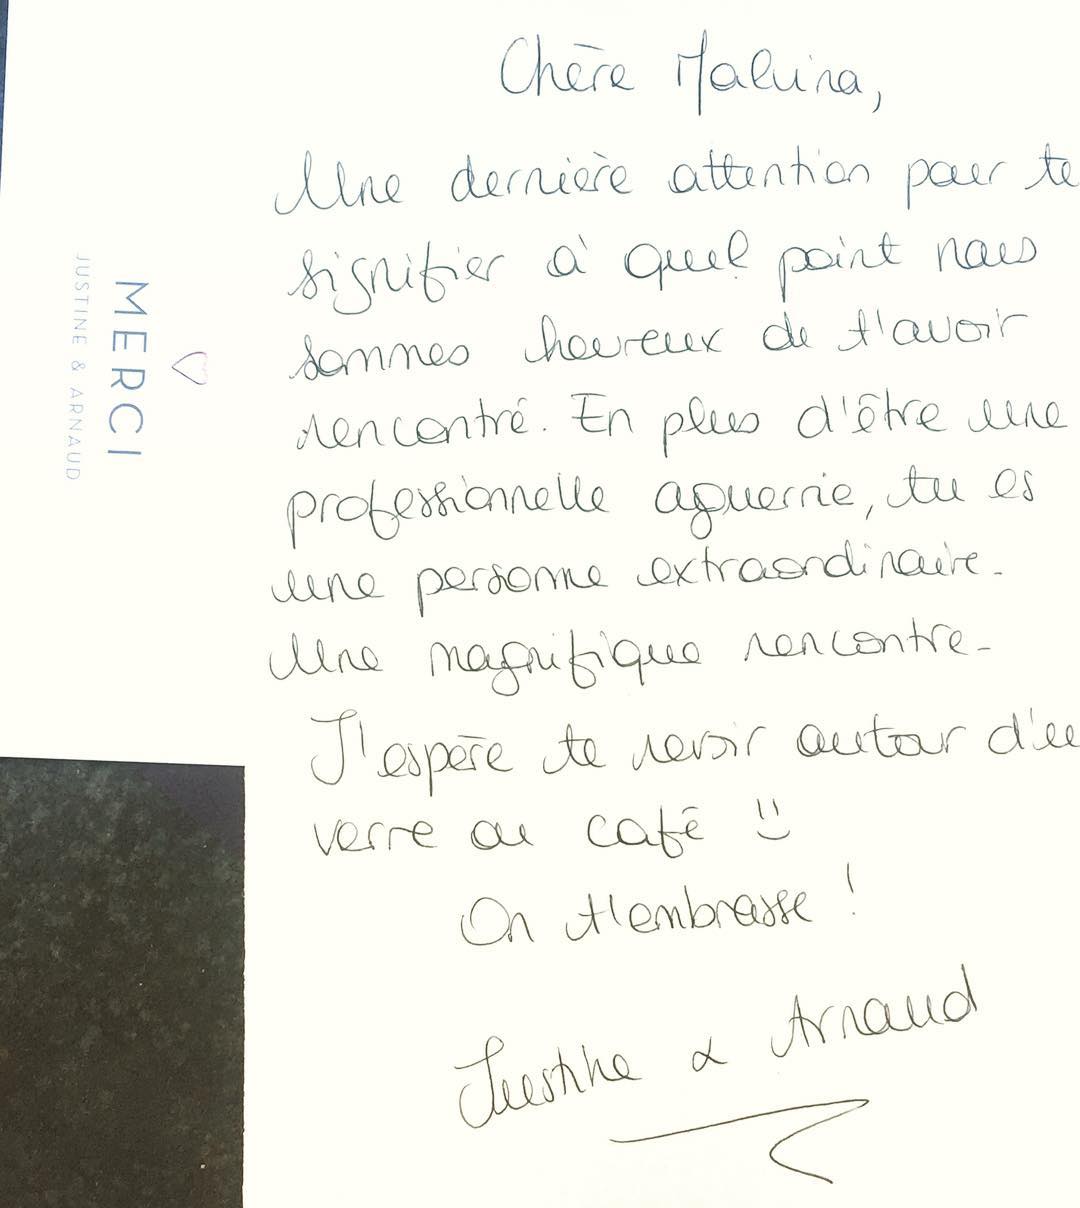 Chère Malvina,
Une dernière attention pour te
signifier à quel point nous
sommes heureux de t'avoir
rencontré. En plus d'être une
professionnelle aguerrie, tu es
une personne extraordinaire.
Une magnifique rencontre.
J'espère te revoir autour d'u
verre ou café !!
On t'embrasse !
Justine & Arnaud
MERCI
JUSTINE & ARNAUD